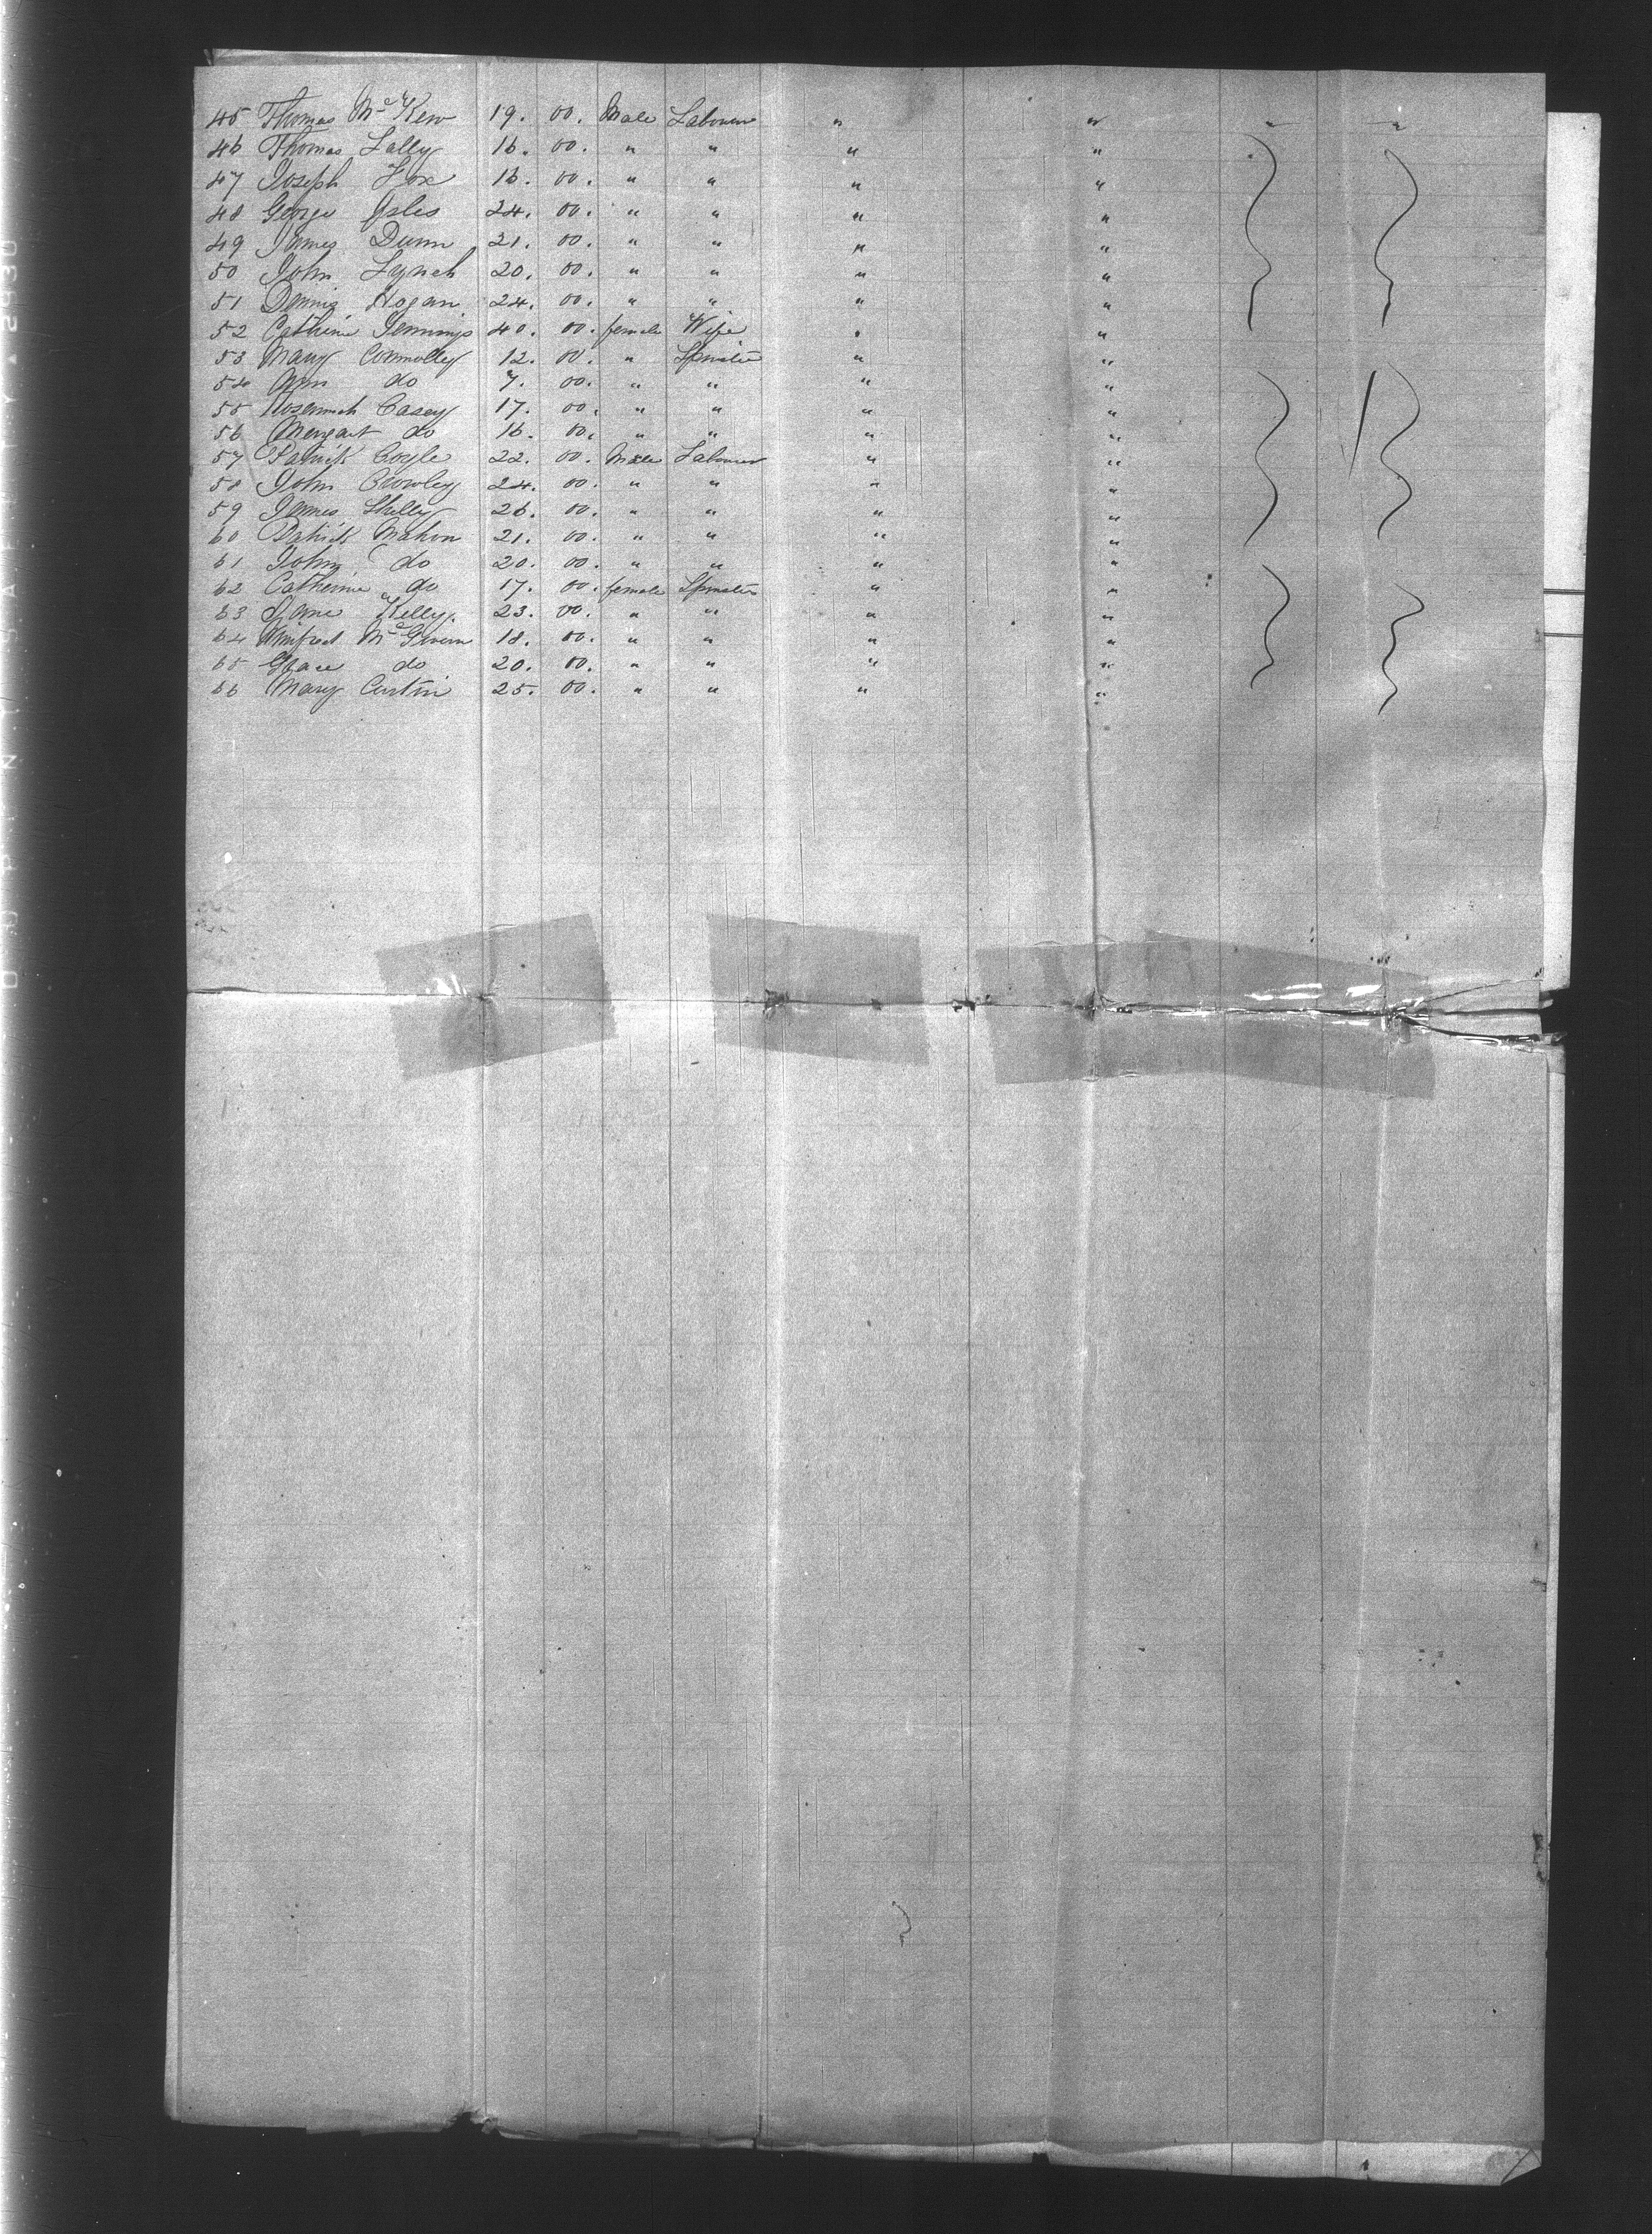 45 Thomas McKew 19. 00. Male Labourer " " " "
46 Thomas Lally 16. 00. " " " "
47 Joseph Fox 16. 00. " " " "
48 George Isles 24. 00. " " " "
49 James Dunn 21. 00. " " " "
50 John Lynch 20. 00. " " " "
51 Dennis Hogan 24. 00. " " " "
52 Cathrine Jennings 40. 00. female Wife " "
53 Mary Connolley 12. 00. " Spinster " "
54 Ann do 7. 00. " " " "
55 Casey 17. 00. " " " "
56 Margart do 16. 00. " " " "
57 Patrick Coyle 22. 00. Male Labourer " "
58 John Crowley 24. 00. " " " "
59 James Skelly 26. 00. " " " "
60 Patrick Mahon 21. 00. " " " "
61 John do 20. 00. " " " "
62 Catherine do 17. 00. female Spinster " "
63 Jane Kelly. 23. 00. " " " "
64 Winifred McGivern 18. 00. " " " "
65 Grace do 20. 00. " " " "
66 Mary Curtin 25. 00. " " " "